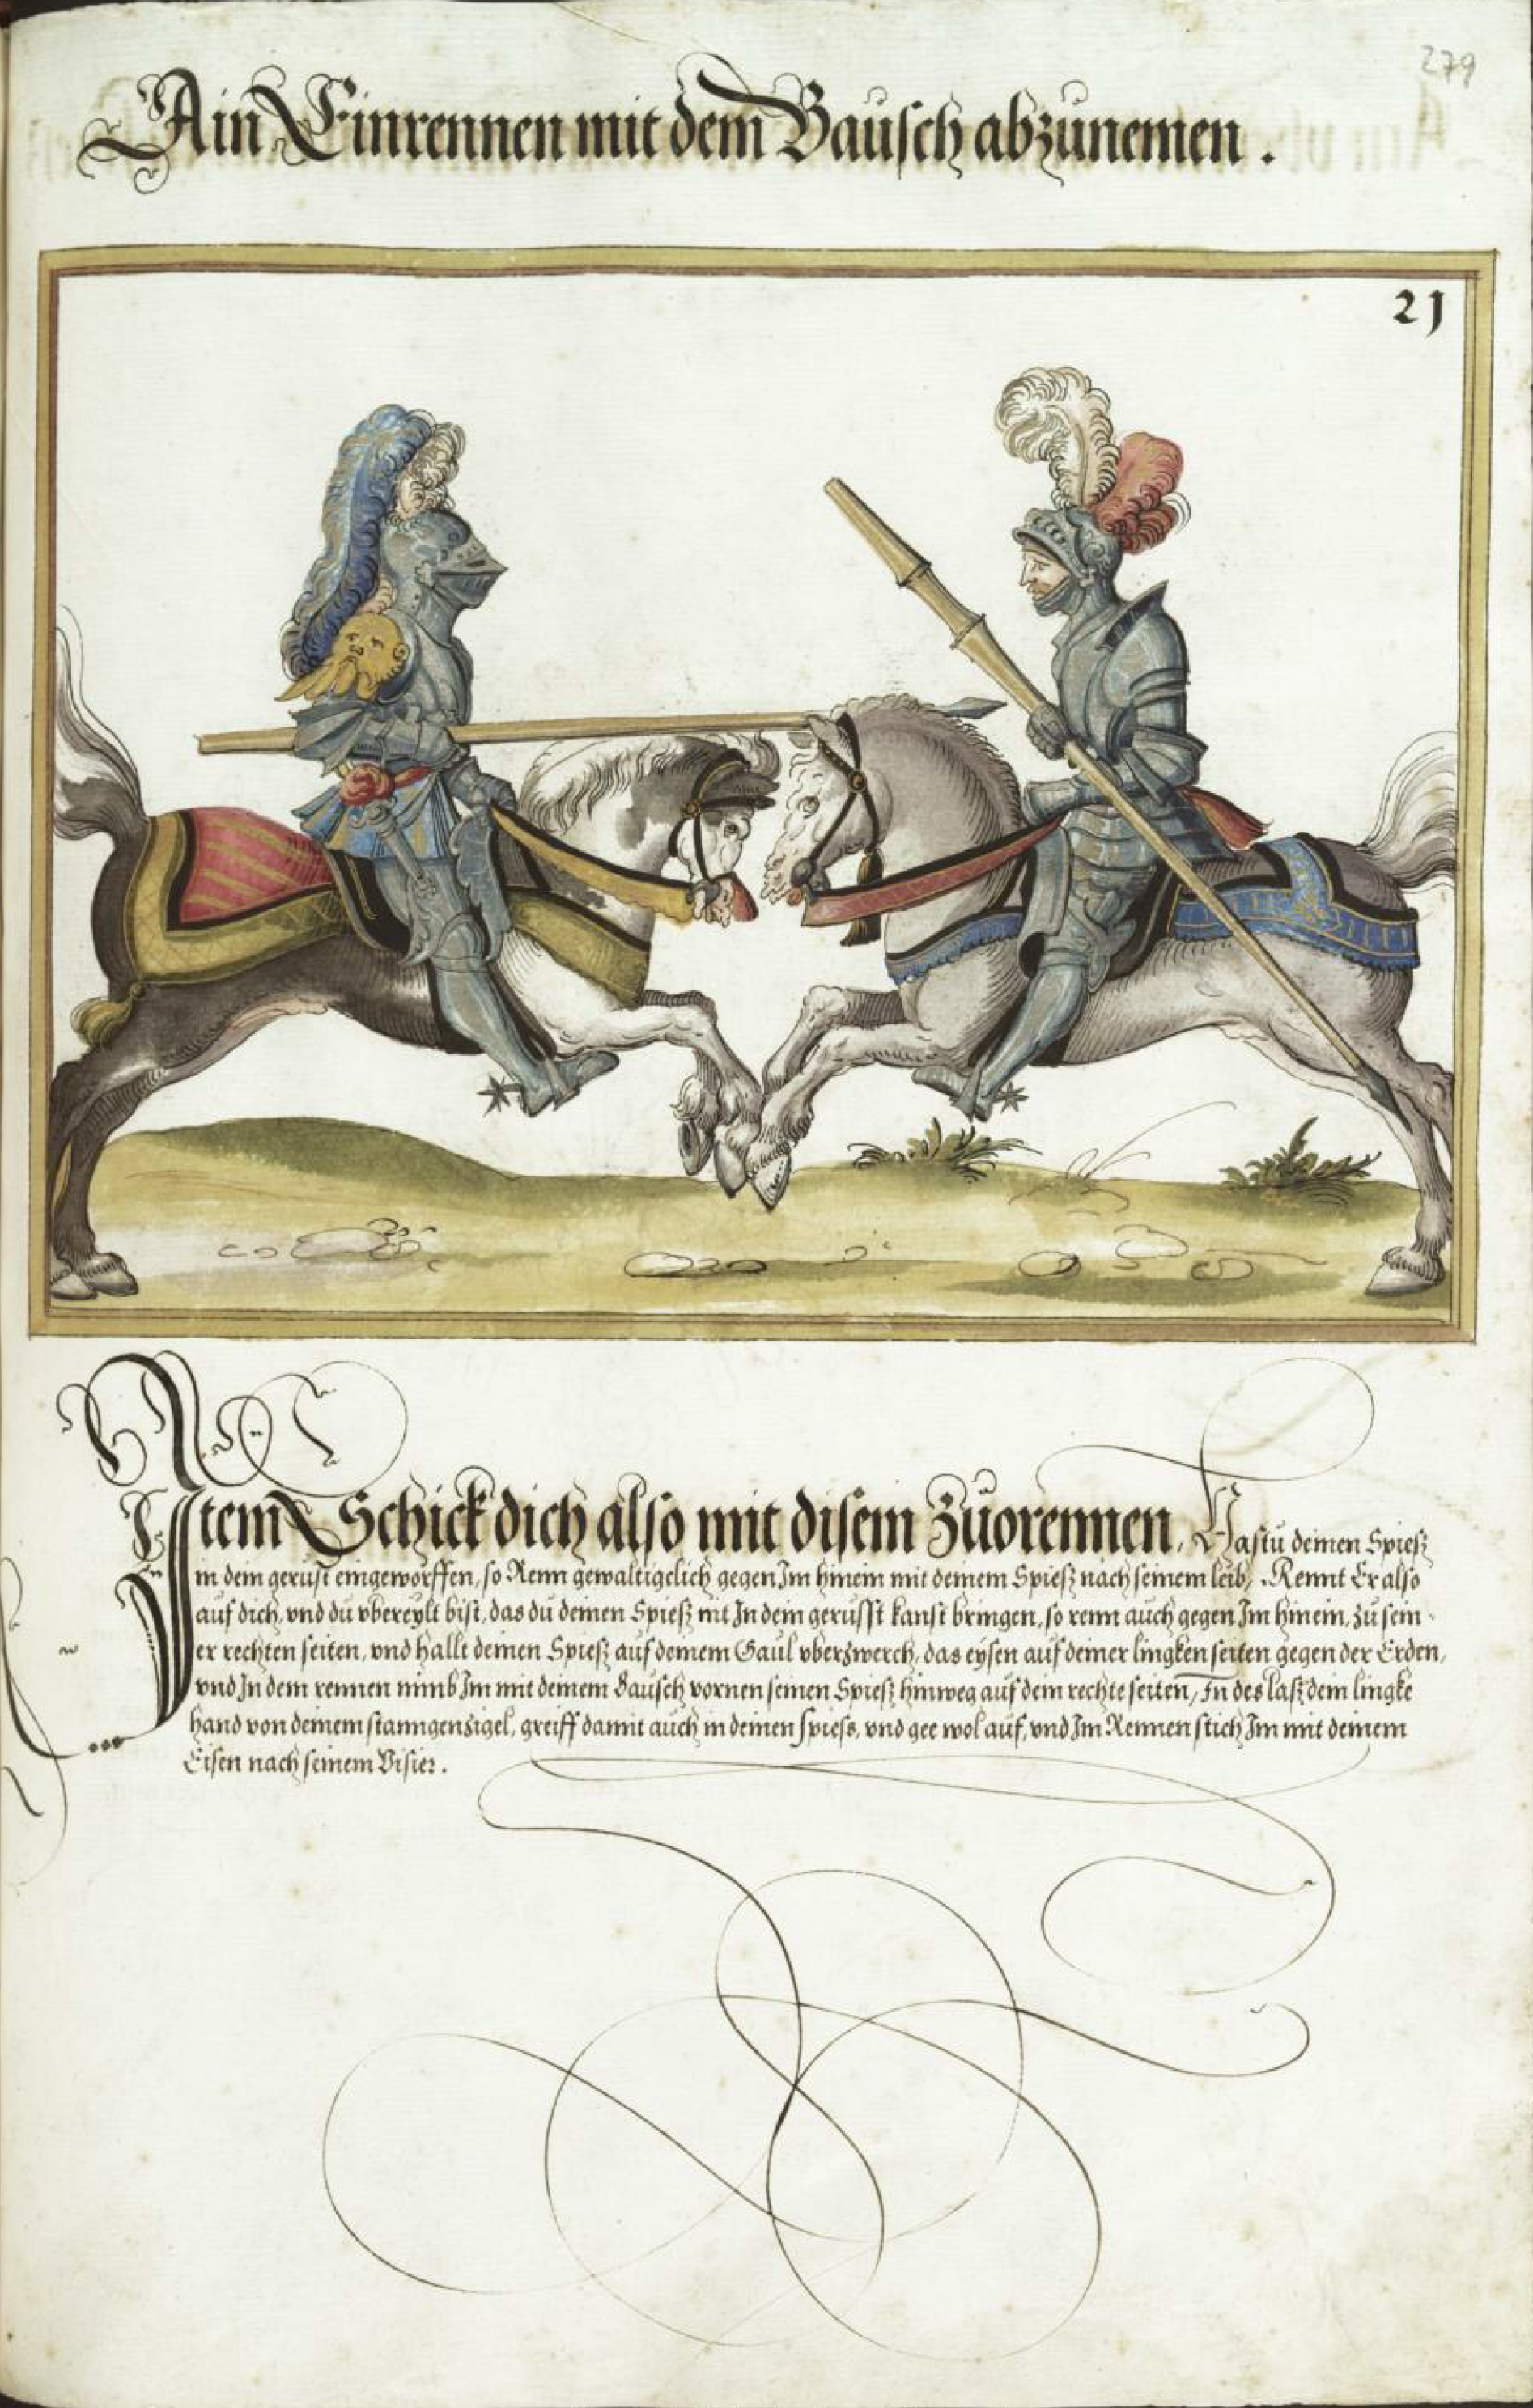 279
Ain Einrennen mit dem Bausch abzunemen.
21
Item Schick dich also mit disem Zuorennen, Hastu deinen Spiesz
in dein gerust eingeworffen, so Renn gewaltigclich gegen Im hinein mit deinem Spiesz nach seinem leib, Rennt Er also
auf dich, vnd du vbereylt bist, das du deinen Spiesz nit In dein gerusst kanst bringen, so renn auch gegen Im hinein, zu sein-
er rechten seiten, vnd hallt deinen Spiesz auf deinem Gaul vberzwerch, das eysen auf deiner lingken seiten gegen der Erden,
vnd In dem rennen nimb Im mit deinem Bausch vornen seinen Spiesz hinweg auf dein rechte seiten, In des lasz dein lingke
hand von deinem stanngenzigel, greiff damit auch in deinen spiess, vnd gee wol auf, vnd Im Rennen stich Im mit deinem
Eisen nach seinem Visier.